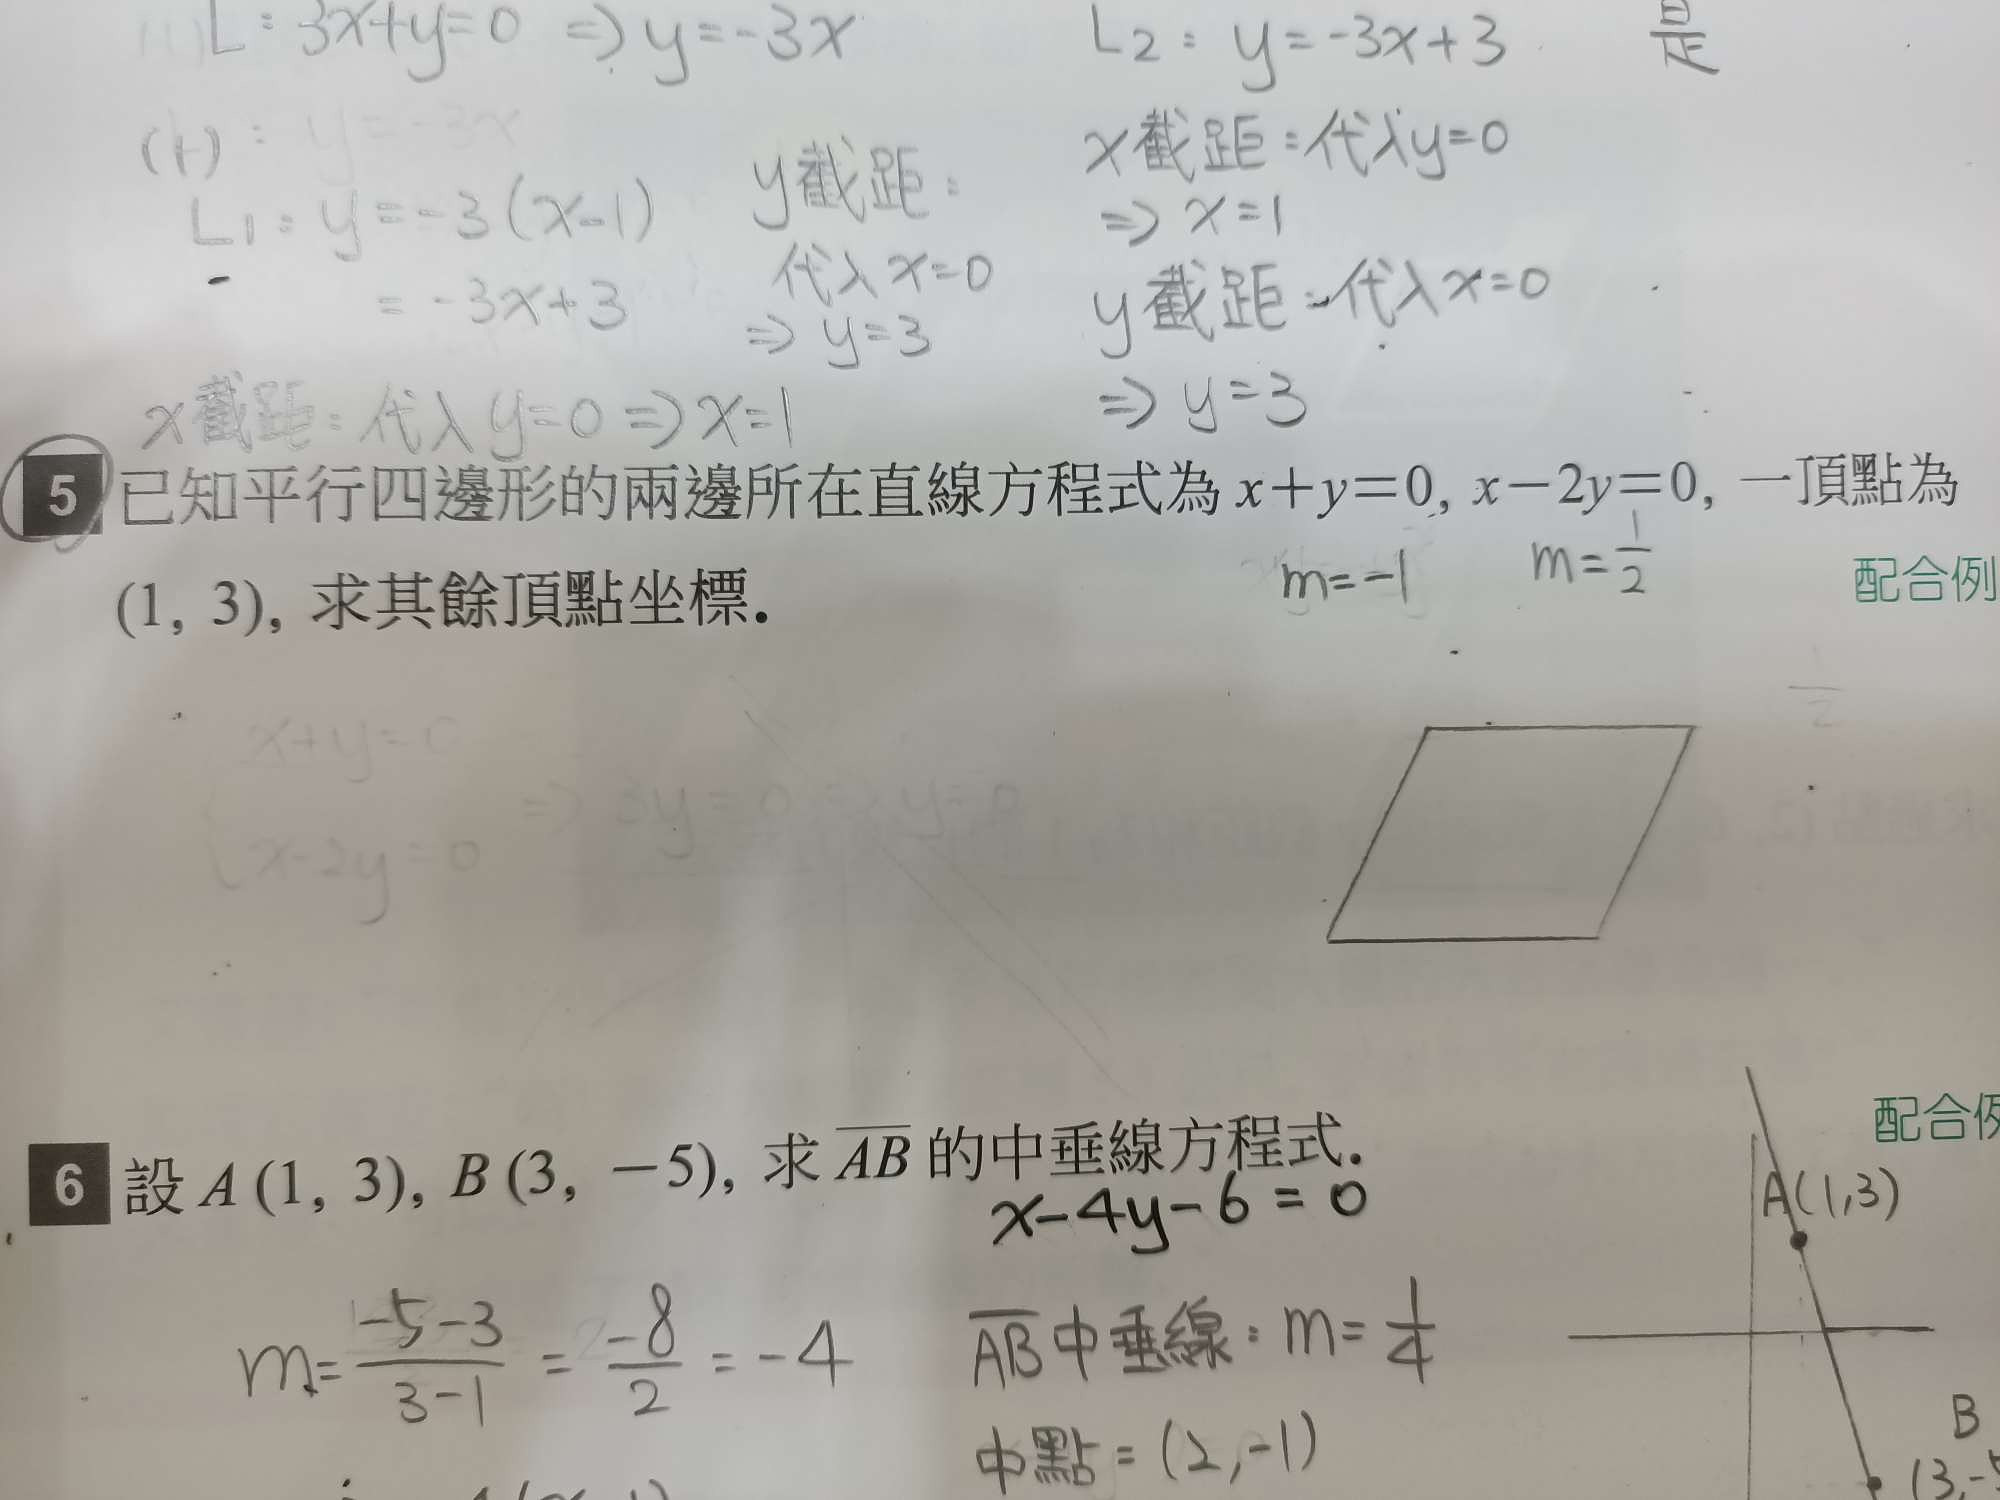 L：3x+y=0 ⇒ y=-3x
L2：y=-3x+3
是
(1)
：y=-3x
L1：y=-3(x-1)
=-3x+3
x截距：代入y=0 ⇒ x=1
y截距：
代入x=0
⇒ y=3
x截距：代入y=0
⇒ x=1
y截距：代入x=0
⇒ y=3
5 已知平行四邊形的兩邊所在直線方程式為 x＋y＝0, x－2y＝0, 一頂點為
(1, 3), 求其餘頂點坐標.
m=-1
m=1/2
配合例
1/2
x+y=0
x-2y=0
⇒ 3y=0 ⇒ y=0
6 設 A (1, 3), B (3, －5), 求 AB 的中垂線方程式.
配合例
x-4y-6=0
m=(-5-3)/(3-1)=-8/2=-4
AB中垂線：m=1/4
中點=(2,-1)
A(1,3)
B